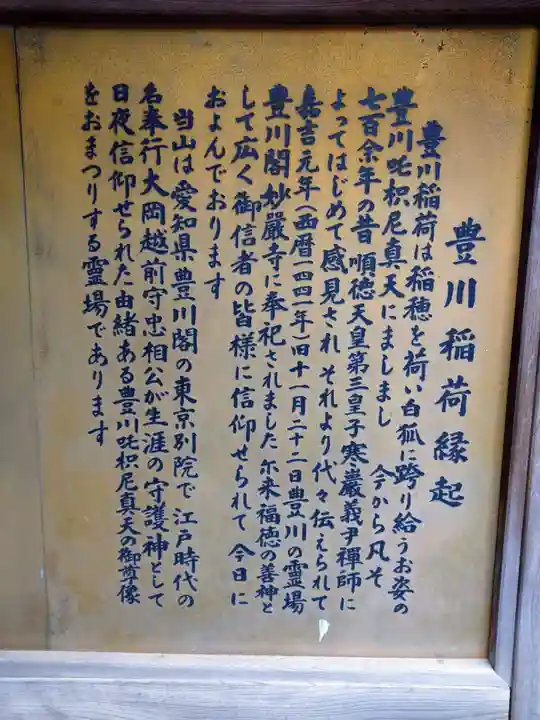 豊川稲荷縁起
豊川稲荷は稲穂を荷い白狐に跨り給うお姿の
豊川吒枳尼真天にましまし 今から凡そ
七百余年の昔 順徳天皇第三皇子寒巖義尹禅師に
よってはじめて感見され それより代々伝えられて
嘉吉元年(西暦一四四一年)旧十一月二十二日豊川の霊場
豊川閣妙嚴寺に奉祀されました 尓来福徳の善神と
して広く御信者の皆様に信仰せられて 今日に
およんでおります
当山は愛知県豊川閣の東京別院で 江戸時代の
名奉行大岡越前守忠相公が生涯の守護神として
日夜信仰せられた由緒ある豊川吒枳尼真天の御尊像
をおまつりする霊場であります